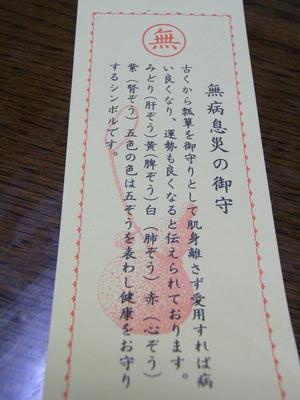 無
無病息災の御守
古くから瓢箪を御守りとして肌身離さず愛用すれば病
い良くなり、運勢も良くなると伝えられております。
みどり(肝ぞう)黄(脾ぞう)白(肺ぞう)赤(心ぞう)
紫(腎ぞう)五色の色は五ぞうを表わし健康をお守り
するシンボルです。